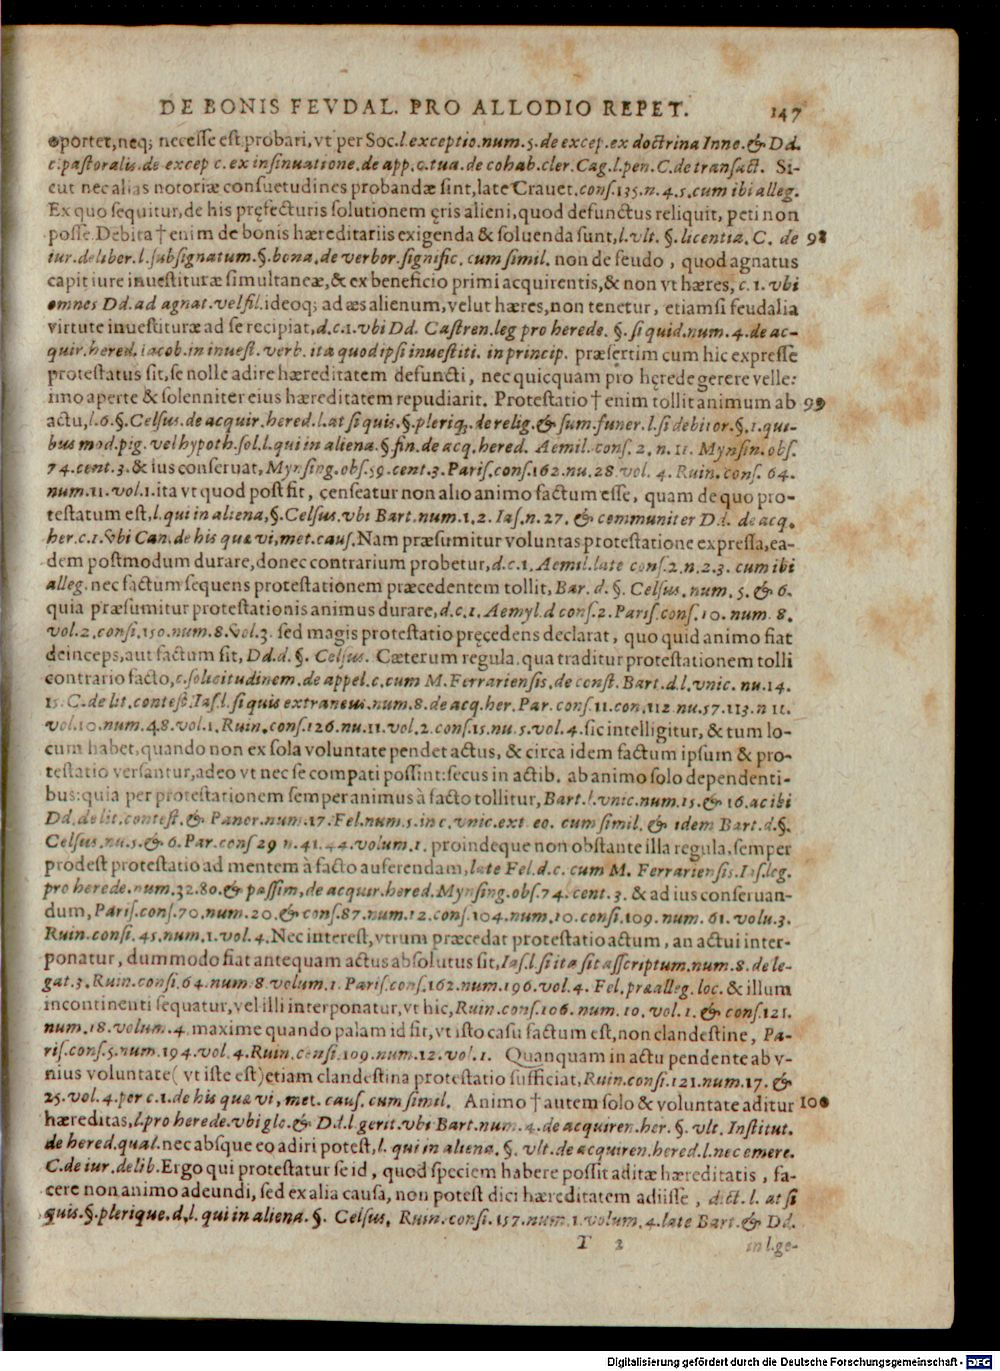 DE BONIS FEVDAL. PRO ALLODIO REPET. 147
oportet, neq; necesse est probari, vt per Soc. l. exceptio. num. 5. de excep. ex doctrina Inno. & Dd.
c. pastoralis. de excep c. ex insinuatione. de app. c. tua. de cohab. cler. Cag. l. pen. C. de transact. Si-
cut nec alias notoriæ consuetudines probandæ sint, late Crauet. cons. 135. n. 4. 5. cum ibi alleg.
Ex quo sequitur, de his pręfecturis solutionem ęris alieni, quod defunctus reliquit, peti non
posse. Debita † enim de bonis hæreditariis exigenda & soluenda sunt, l. vlt. §. licentia. C. de 98
iur. deliber. l. subsignatum. §. bona. de verbor. signific. cum simil. non de feudo, quod agnatus
capit iure inuestituræ simultaneæ, & ex beneficio primi acquirentis, & non vt hæres, c. 1. vbi
omnes Dd. ad agnat. vel fil. ideoq; ad æs alienum, velut hæres, non tenetur, etiamsi feudalia
virtute inuestituræ ad se recipiat, d. c. 1. vbi Dd. Castren. leg pro herede. §. si quid. num. 4. de ac-
quir. hered. iacob. in inuest. verb. ita quod ipsi inuestiti. in princip. præsertim cum hic expresse
protestatus sit, se nolle adire hæreditatem defuncti, nec quicquam pro hęrede gerere velle:
imo aperte & solenniter eius hæreditatem repudiarit. Protestatio † enim tollit animum ab 99
actu, l. 6. §. Celsus. de acquir. hered. l. at si quis. §. pleriq;. de relig. & sum. funer. l. si debitor. §. 1. qui-
bus mod. pig. vel hypoth. sol. l. qui in aliena. §. fin. de acq. hered. Aemil. cons. 2. n. 11. Mynsin. obs.
74. cent. 3. & ius conseruat, Mynsing. obs. 59. cent. 3. Paris. cons. 162. nu. 28. vol. 4. Ruin. cons. 64.
num. 11. vol. 1. ita vt quod post fit, çenseatur non alio animo factum esse, quam de quo pro-
testatum est, l. qui in aliena, §. Celsus. vbi Bart. num. 1. 2. Ias. n. 27. & communiter Dd. de acq.
her. c. 1. vbi Can. de his quæ vi, met. caus. Nam præsumitur voluntas protestatione expressa, ea-
dem postmodum durare, donec contrarium probetur, d. c. 1. Aemil. late cons. 2. n. 2. 3. cum ibi
alleg. nec factum sequens protestationem præcedentem tollit, Bar. d. §. Celsus. num. 5. & 6.
quia præsumitur protestationis animus durare, d. c. 1. Aemyl. d cons. 2. Paris. cons. 10. num. 8.
vol. 2. consi. 150. num. 8. vol. 3. sed magis protestatio pręcędens declarat, quo quid animo fiat
deinceps, aut factum sit, Dd. d. §. Celsus. Cæterum regula. qua traditur protestationem tolli
contrario facto, c. solicitudinem. de appel. c. cum M. Ferrariensis. de const. Bart. d. l. vnic. nu. 14.
15. C. de lit. contest. Ias. l. si quis extraneus. num. 8. de acq. her. Par. cons. 11. con. 112 nu. 57. 113. n 11.
vol. 10. num. 48. vol. 1. Ruin. cons. 126. nu. 11. vol. 2. cons. 15. nu. 5. vol. 4. sic intelligitur, & tum lo-
cum habet, quando non ex sola voluntate pendet actus, & circa idem factum ipsum & pro-
testatio versantur, adeo vt nec se compati possint: secus in actib. ab animo solo dependenti-
bus: quia per protestationem semper animus à facto tollitur, Bart. l. vnic. num. 15. & 16. ac ibi
Dd. de lit. contest. & Panor. num. 17. Fel. num. 5. in c. vnic. ext eo. cum simil. & idem Bart. d. §.
Celsus. nu. 5. & 6. Par. cons 29 n. 41. 44. volum. 1. proindeque non obstante illa regula, semper
prodest protestatio ad mentem à facto auferendam, late Fel. d. c. cum M. Ferrariensis. Ias. leg.
pro herede. num. 32. 80. & passim, de acquir. hered. Mynsing. obs. 74. cent. 3. & ad ius conseruan-
dum, Paris. cons. 70. num. 20. & cons. 87. num. 12. cons. 104. num. 10. consi. 109. num. 61. volu. 3.
Ruin. consi. 45. num. 1. vol. 4. Nec interest, vtrum præcedat protestatio actum, an actui inter-
ponatur, dummodo fiat antequam actus absolutus sit, Ias. l. si ita sit asscriptum. num. 8. de le-
gat. 3. Ruin. consi. 64. num. 8. volum. 1. Paris. cons. 162. num. 196. vol. 4. Fel. præalleg. loc. & illum
incontinenti sequatur, vel illi interponatur, vt hic, Ruin. cons. 106. num. 10. vol. 1. & cons. 121.
num. 18. volum. 4. maxime quando palam id fit, vt isto casu factum est, non clandestine, Pa-
ris. cons. 5. num. 194. vol. 4. Ruin. censi. 109. num. 12. vol. 1. Quanquam in actu pendente ab v-
nius voluntate (vt iste est) etiam clandestina protestatio sufficiat, Ruin. consi. 121. num. 17. &
25. vol. 4. per c. 1. de his quæ vi, met. caus. cum simil. Animo † autem solo & voluntate aditur 100
hæreditas, l. pro herede. vbi glo. & Dd. l. gerit. vbi Bart. num. 4. de acquiren. her. §. vlt. Institut.
de hered. qual. nec absque eo adiri potest, l. qui in aliena. §. vlt. de acquiren. hered. l. nec emere.
C. de iur. delib. Ergo qui protestatur se id, quod speciem habere possit aditæ hæreditatis, fa-
cere non animo adeundi, sed ex alia causa, non potest dici hæreditatem adiisse, d. ct. l. at si
quis. §. plerique. d. l. qui in aliena. §. Celsus, Ruin. consi. 157. num. 1. volum. 4. late Bart. & Dd.
T 2 in l. ge-
Digitalisierung gefördert durch die Deutsche Forschungsgemeinschaft - DFG